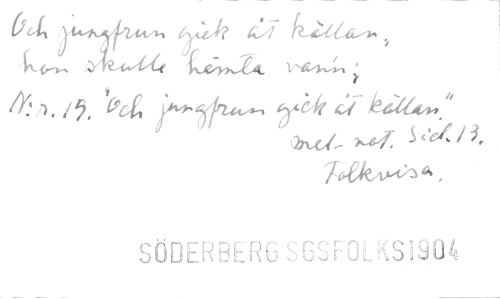 Och jungfrun gick åt källan,
hon skulle hämta vann;
N:r. 15. "Och jungfrun gick åt källan."
mel- not. Sid. 13.
Folkvisa.
SÖDERBERG SGSFOLKS1904